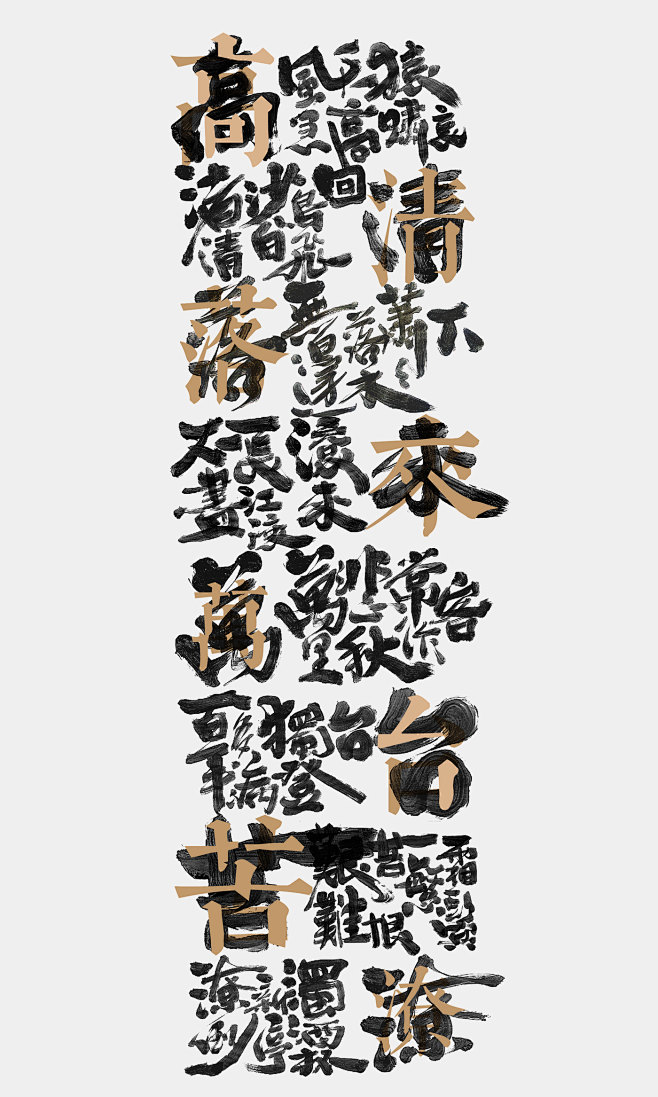 高 風急天高猿嘯哀
渚清沙白鳥飛回 清
落 無邊落木蕭々下
不盡長江滾滾來 來
萬 萬里悲秋常作客
百年多病獨登台 台
苦 艱難苦恨繁霜鬢
潦倒新停濁酒杯 潦